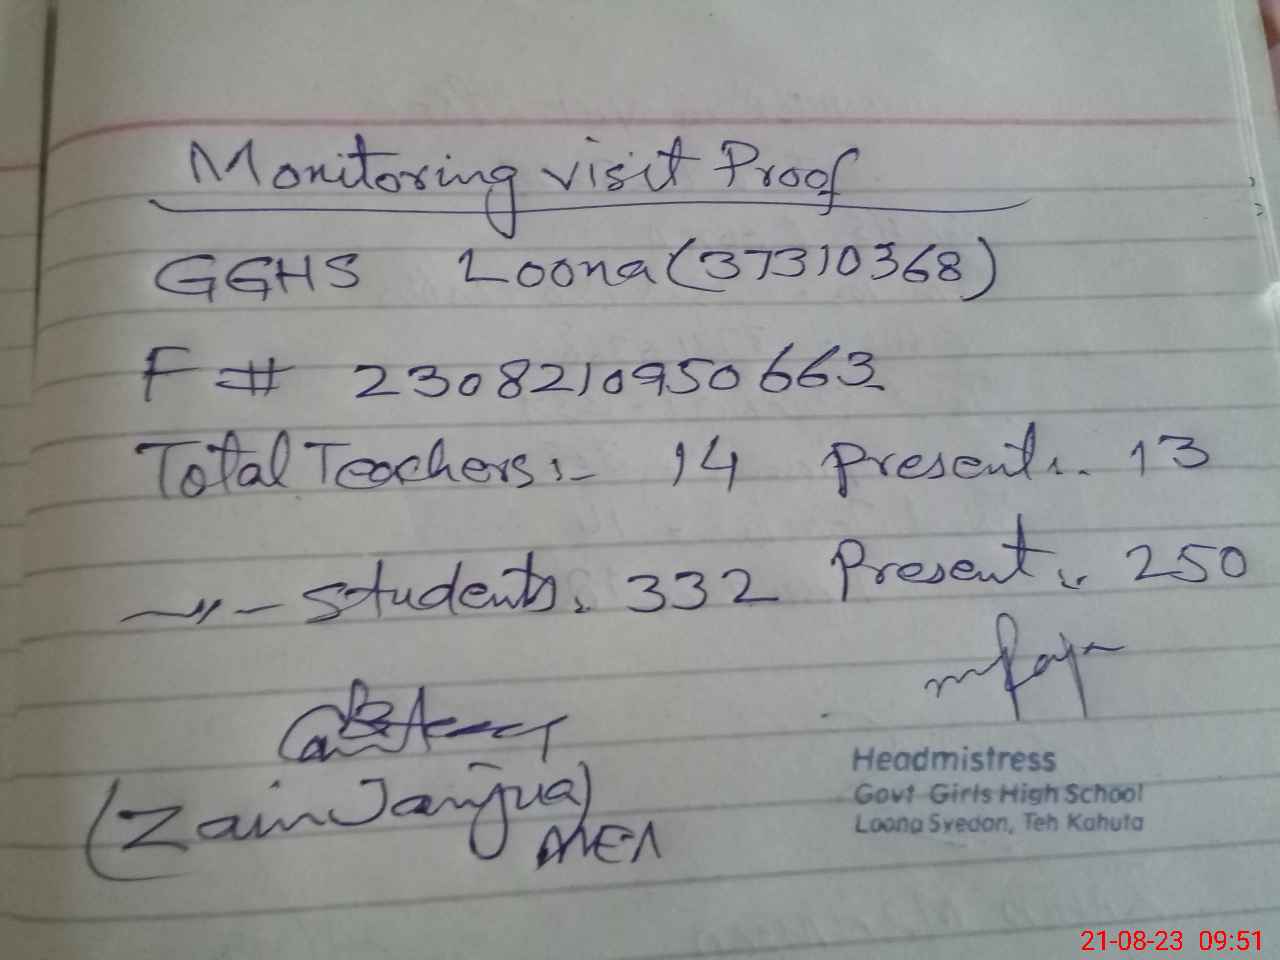 Monitoring visit Proof
GGHS Loona (37310368)
F # 2308210950663
Total Teachers:- 14 Present:. 13
—〃— Students: 332 Present:. 250
(Zain Janjua)
MEA
Headmistress
Govt Girls High School
Loona Syedan, Teh Kahuta
21-08-23 09:51